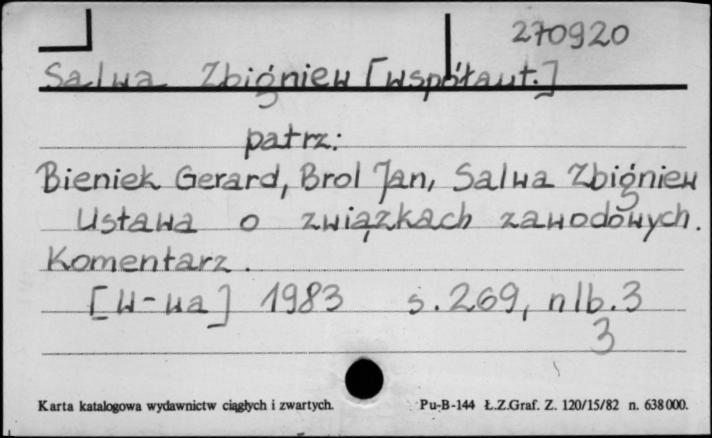 270920
Salwa Zbigniew [współaut.]
patrz:
Bieniek Gerard, Brol Jan, Salwa Zbigniew
Ustawa o związkach zawodowych.
Komentarz.
[W-wa] 1983 s. 269, nlb. 3
3
Karta katalogowa wydawnictw ciągłych i zwartych. Pu-B-144 Ł.Z.Graf. Z. 120/15/82 n. 638000.